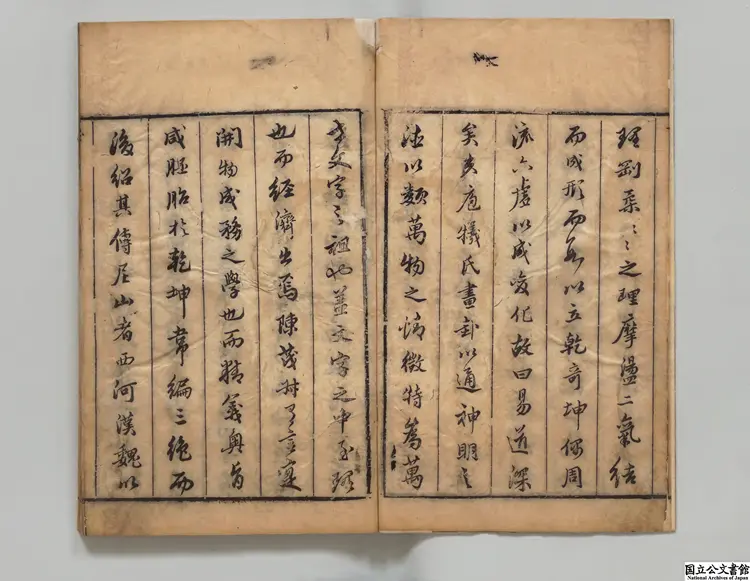 剛柔〻〻之理摩盪二氣結
而成形而以立乾奇坤偶周
流六虛以成變化故曰易道深
矣夫庖犧氏畫卦以通神明之
德以類萬物之情微特為萬
世文字之祖也蓋文字之中至理
也而經濟出焉陳茂對言寔
開物成務之學也而精義奧旨
咸胚胎於乾坤韋編三絕而
後紹其傳尼山者西河漢魏以
国立公文書館
National Archives of Japan